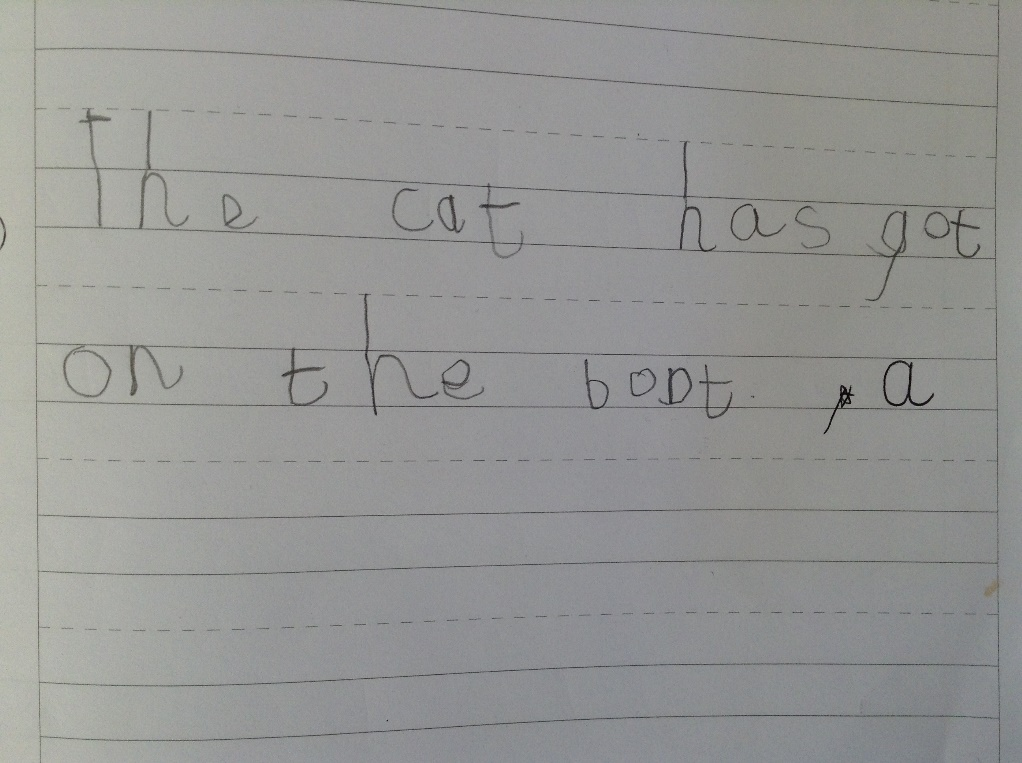 The cat has got
on the boot. a